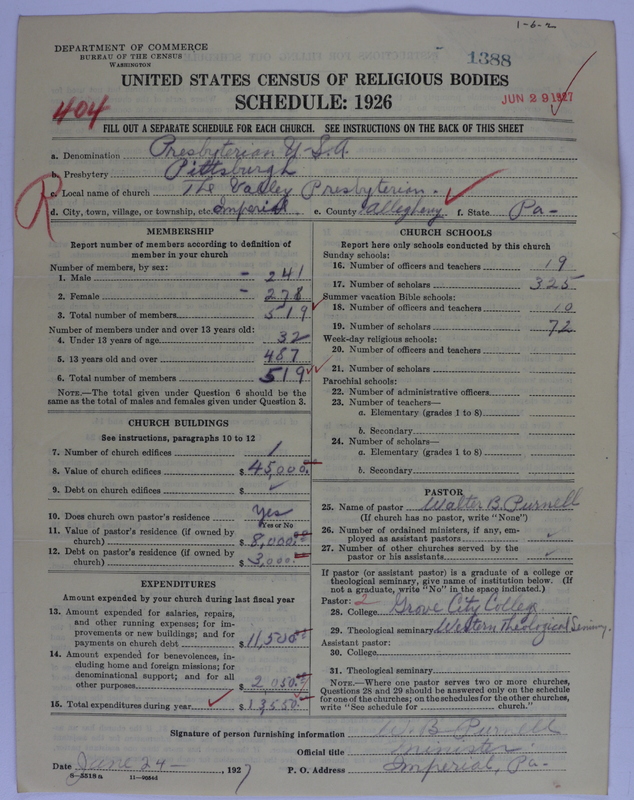 1-6-2
DEPARTMENT OF COMMERCE
BUREAU OF THE CENSUS
WASHINGTON
1388
UNITED STATES CENSUS OF RELIGIOUS BODIES
SCHEDULE: 1926
JUN 29 1927
404
FILL OUT A SEPARATE SCHEDULE FOR EACH CHURCH. SEE INSTRUCTIONS ON THE BACK OF THIS SHEET
a. Denomination Presbyterian U.S.A.
b. Presbytery Pittsburgh
c. Local name of church The Valley Presbyterian.
R
d. City, town, village, or township, etc. Imperial e. County Allegheny f. State Pa-
MEMBERSHIP
Report number of members according to definition of
member in your church
Number of members, by sex:
1. Male - 241
2. Female - 278
3. Total number of members 519
Number of members under and over 13 years old:
4. Under 13 years of age 32
5. 13 years old and over 487
6. Total number of members 519
NOTE.—The total given under Question 6 should be
same as the total of males and females given under Question 3.
CHURCH BUILDINGS
See instructions, paragraphs 10 to 12
7. Number of church edifices 1
8. Value of church edifices $ 45,000.
9. Debt on church edifices $
10. Does church own pastor's residence Yes
Yes or No
11. Value of pastor's residence (if owned by
church) $ 8,000.
12. Debt on pastor's residence (if owned by
church) $ 3,000.
EXPENDITURES
Amount expended by your church during last fiscal year
13. Amount expended for salaries, repairs,
and other running expenses; for im-
provements or new buildings; and for
payments on church debt $ 11,500
14. Amount expended for benevolences, in-
cluding home and foreign missions; for
denominational support; and for all
other purposes $ 2 050.
15. Total expenditures during year $ 13,550.
CHURCH SCHOOLS
Report here only schools conducted by this church
Sunday schools:
16. Number of officers and teachers 19
17. Number of scholars 325
Summer vacation Bible schools:
18. Number of officers and teachers 10
19. Number of scholars 72
Week-day religious schools:
20. Number of officers and teachers
21. Number of scholars
Parochial schools:
22. Number of administrative officers
23. Number of teachers—
a. Elementary (grades 1 to 8)
b. Secondary
24. Number of scholars—
a. Elementary (grades 1 to 8)
b. Secondary
PASTOR
25. Name of pastor Walter B. Purnell
(If church has no pastor, write "None")
26. Number of ordained ministers, if any, em-
ployed as assistant pastors
27. Number of other churches served by the
pastor or his assistants
If pastor (or assistant pastor) is a graduate of a college or
theological seminary, give name of institution below. (If
not a graduate, write "No" in the space indicated.)
Pastor: 2
28. College Grove City College
29. Theological seminary Western Theological Seminary.
Assistant pastor:
30. College
31. Theological seminary
NOTE.—Where one pastor serves two or more churches,
Questions 28 and 29 should be answered only on the schedule
for one of the churches; on the schedules for the other churches,
write "See schedule for church."
Signature of person furnishing information W. B. Purnell
Official title Minister.
Date June 24 — , 1927 P. O. Address Imperial, Pa-
8-5518 a